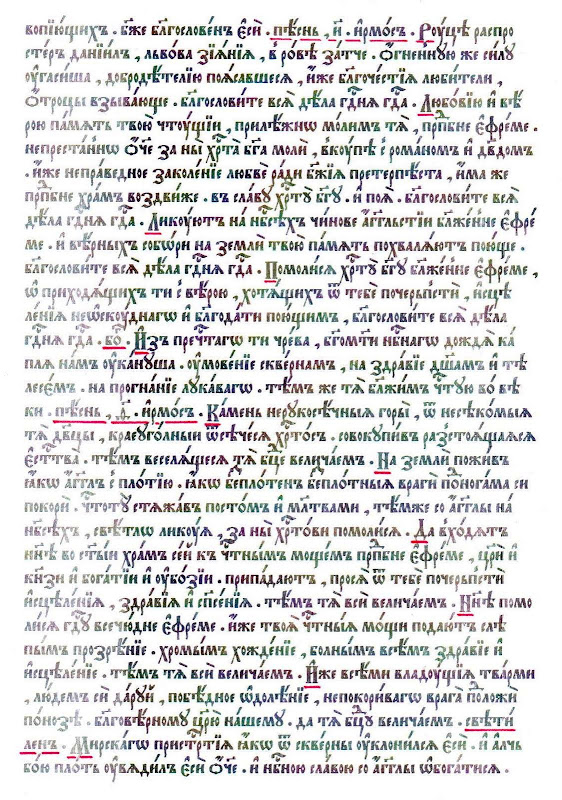 вопїю́щихъ . бж҃е бл҃гослове́нъ є҆сѝ . пѣ́снь , и҃ . і҆рмо́съ . Ро́уцѣ распро
сте́ръ данїи́лъ , льво́ва зїѧ́нїѧ , в ро́вѣ затчѐ . Ѻ҆́гненꙋю же си́лꙋ
оу҆гаси́ша , добродѣ́телїю поѧ́савшесѧ , и҆̀же бл҃гоче́стїѧ люби́тели ,
Ѻ҆́троцы взыва́юще . бл҃гослови́те всѧ̑ дѣла̀ гдⷭ҇нѧ гдⷭ҇а . Любо́вїю и҆ вѣ́
рою па́мѧть твою̀ чтоу́щїи , прилѣ́жнѡ мо́лимъ тѧ̀ , прпⷣбне є҆фре́ме .
непреста́ннѡ ѻ҆́ч҃е за ны̀ хрⷭ҇та̀ бг҃а молѝ , вкоу́пѣ с рома́номъ и҆ дв҃домъ
. и҆̀же непра́ведное заколе́нїе любвѐ ра́ди бж҃їѧ претерпѣ́ста , и҆́ма же
прпⷣбне хра́мъ воздви́же . въ сла́вꙋ хрⷭ҇тꙋ̀ бг҃ꙋ . и҆ поѧ̀ . бл҃гослови́те всѧ̑
дѣла̀ гдⷭ҇нѧ гдⷭ҇а . Лико́уютъ на нб҃сѣ́хъ чи́нове а҆́гг҃льстїи бл҃же́нне є҆фре́
ме . и҆ вѣ́рныхъ собо́ри на землѝ твою̀ па́мѧть похвалѧ́ютъ пою́ще .
бл҃гослови́те всѧ̑ дѣла̀ гдⷭ҇нѧ гдⷭ҇а . Помоли́сѧ хрⷭ҇тꙋ̀ бг҃ꙋ бл҃же́нне є҆фре́ме ,
ѡ҆ приходѧ́щихъ тѝ с вѣ́рою , хотѧ́щихъ ѿ тебѐ почерьпстѝ , и҆сцѣ
ле́нїѧ неѡ҆скоу́днагѡ и҆ бл҃года́ти пою́щимъ , бл҃гослови́те всѧ̑ дѣла̀
гдⷭ҇нѧ гдⷭ҇а . бо҃ . И҆зъ пречⷭ҇тагѡ тѝ чре́ва , бг҃ом҃ти нб҃нагѡ дождѧ̀ ка́
плѧ на́мъ оу҆ка́ноуша . оу҆мове́нїе скве́рнамъ , на здра́вїе дш҃а́мъ и҆ тѣ
лесе́мъ . на прогна́нїе лꙋка́вагѡ . тѣ́мъ же тѧ̀ бл҃жи́мъ чтꙋ́ю во вѣ́
ки . пѣ́снь , д҃ . і҆рмо́съ . Ка́мень нерꙋкосѣ́чныѧ горы̀ , ѿ несѣко́мыѧ
тѧ̀ дв҃цы , краеуго́лный ѿсѣче́сѧ хрⷭ҇то́съ . совокꙋпи́въ разстоѧ́щаѧсѧ
є҆стⷭ҇тва . тѣ́мъ веселѧ́щесѧ тѧ̀ бцⷣе велича́емъ . На землѝ пожи́въ
ꙗ҆́кѡ а҆́гг҃лъ с пло́тїю . ꙗ҆́кѡ бесплотенъ бесплотныѧ врагѝ под нога́ма си
покорѝ . чⷭ҇тотꙋ̀ стѧжа́въ посто́мъ и҆ мл҃твами , тѣ́мже со а҆́гг҃лы на́
нб҃сѣ́хъ , свѣ́тлѡ лико́уѧ , за ны̀ хрⷭ҇то́ви помоли́сѧ . Да вхо́дѧтъ
нн҃ѣ во ст҃ы́й хра́мъ се́й къ чⷭ҇тны́мъ моще́мъ прпⷣбне є҆фре́ме , цр҃и и҆
кнѧ҃зи и҆ бога́тїи и҆ оу҆бо́зїи . припа́даютъ , просѧ̀ ѿ тебѐ почерьпстѝ
и҆сцѣле́нїѧ , здра́вїѧ и҆ спⷭ҇е́нїѧ . тѣ́мъ тѧ̀ всѝ велича́емъ . Нн҃ѣ помо
ли́сѧ гдⷭ҇ꙋ всечю́дне є҆фре́ме . и҆̀же твоѧ̀ чⷭ҇тны́ѧ мо́щи подаю́тъ слѣ
пы́мъ прозрѣ́нїе . хромы́мъ хожде́нїе , болны́мъ всѣ́мъ здра́вїе и҆
и҆сцѣле́нїе . тѣ́мъ тѧ̀ всѝ велича́емъ . И҆̀же всѣ́ми владоу́щїѧ тва́рми
, лю́демъ сѝ да́рꙋй , побѣ́дное ѡ҆долѣ́нїе , непокори́вагѡ врага̀ положѝ
по́нозѣ . бл҃говѣ́рномꙋ цр҃ю̀ на́шемꙋ . да тѧ̀ бцⷣꙋ велича́емъ . свѣти́
ленъ . Мирска́гѡ пристрⷭ҇тїѧ ꙗ҆́кѡ ѿ скве́рны оу҆клони́лсѧ є҆сѝ . и҆ а́лчь
бо́ю пло́ть оу҆вѧди́лъ є҆сѝ ѻ҆́ч҃е . и҆ нб҃ною сла́вою со а҆́гг҃лы ѡ҆богати́сѧ .